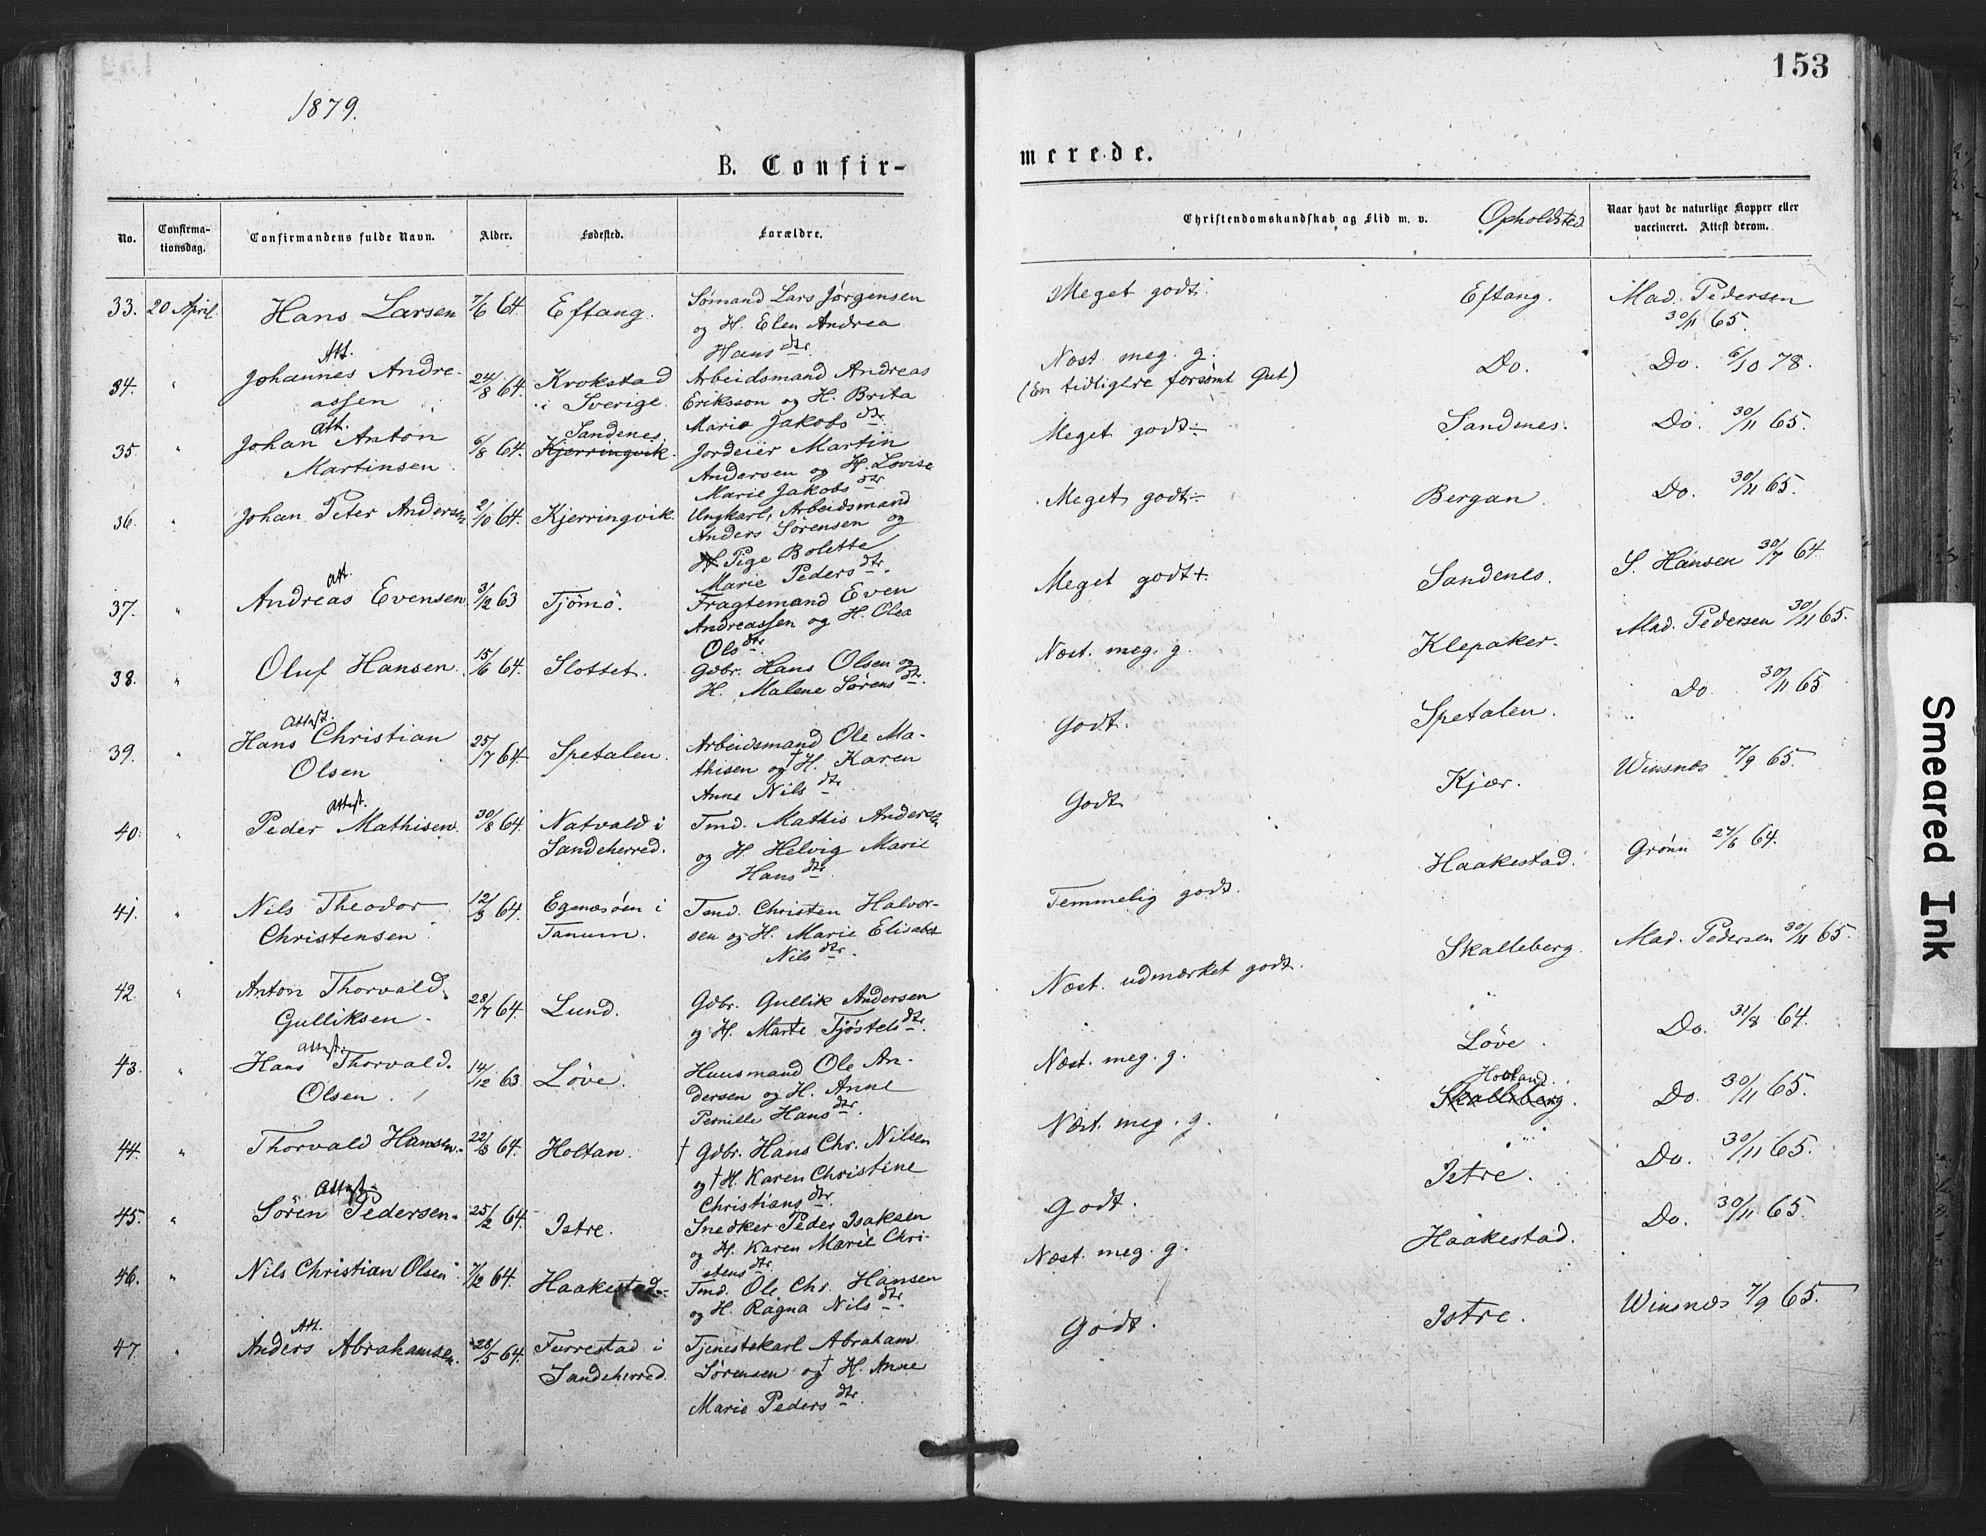 153
1879.
B. Confir-
merede.
No.
Confirma-
tionsdag.
Confirmandens fulde Navn.
Alder.
Fødested.
Forældre.
Christendomskundskab og Flid m. v.
Opholdsted.
Naar havt de naturlige Kopper eller
vaccineret. Attest derom.
33. 20 April. Hans Larsen 7/6 64. Eftang. Sømand Lars Jørgensen
og H. Elen Andrea
Hans dtr.
Meget godt. Eftang. Mad. Pedersen
30/11 65.
Att.
34. " Johannes Andre-
assen 24/8 64. Krokstad
i Sverige. Arbeidsmand Andreas
Eriksson og H. Brita
Maria Jakobs dtr.
Næst. meg. g.
(En tidligere forsømt Gut)
Do. Do. 6/10 78.
att.
35. " Johan Anton
Martinsen 6/8 64. Sandenes.
Kjerringvik. Jordeier Martin
Andersen og H. Lovise
Marie Jakobs dtr
Meget godt. Sandnes. Do. 30/11 65.
36. " Johan Peter Andersen 2/10 64. Kjerringvik. Ungkarl, Arbeidsmand
Anders Sørensen og
H Pige Bolette
Marie Peders dtr.
Meget godt. Bergan. Do. 30/11 65.
att.
37. " Andreas Evensen. 31/12 63 Tjømö. Fragtemand Even
Andreassen og H. Olea
Ols dtr.
Meget godt +. Sandenes. S. Hansen 30/7 64.
38. " Oluf Hansen. 15/6 64. Slottet. Gdbr. Hans Olsen og
H. Malene Sørens dtr.
Næst. meg. g. Klepaker. Mad. Pedersen 30/11 65.
Attest.
39. " Hans Christian
Olsen 25/7 64 Spetalen. Arbeidsmand Ole Ma-
thisen og † H. Karen
Anne Nils dtr
Godt. Spetalen. Do. 30/11 65.
Attest.
40. " Peder Mathisen. 30/8 64. Natvald i
Sandeherred. Tmd. Mathis Andersen
og H. Helvig Marie
Hans dtr.
Godt Kjær. Winsnæs 7/9 65.
41. " Nils Theodor
Christensen 12/3 64. Egenæsöen i
Tanum. Tmd. Christen Halvor-
sen og H. Marie Elisabet
Nils dtr.
Temmelig godt. Haakestad. Grønn 27/6 64.
42. " Anton Thorvald
Gulliksen. 28/7 64. Lund. Gdbr. Gullik Andersen
og H. Marte Tjøstels dtr.
Næst. udmærket godt. Skalleberg. Mad. Pedersen 30/11 65.
Attest.
43. " Hans Thorvald
Olsen. 14/12 63 Løve. Huusmand Ole An-
dersen og H. Anne
Pernille Hans dtr.
Næst. meg. g. Løve. Do. 31/8 64.
44. " Thorvald Hansen. 22/3 64. Holtan. † Gdbr. Hans Chr. Nilsen
og † H. Karen Christine
Christians dtr.
Næst. meg. g. Holtand.
Skalleberg. Do. 30/11 65.
Attest.
45. " Søren Pedersen. 25/2 64. Istre. Snedker Peder Isaksen
og H. Karen Marie Chri-
stens dtr.
Godt. Istre. Do. 30/11 65.
46. " Nils Christian Olsen 7/12 64. Haakestad. Tmd. Ole Chr. Hansen
og H. Ragna Nils dtr.
Næst. meg. g. Haakestad. Do. 30/11 65.
Att.
47. " Anders Abrahamsen. 28/5 64. Furrestad i
Sandeherred. Tjenestekarl Abraham
Sørensen og † H. Anne
Marie Peders dtr.
Godt. Istre. Winsnæs 7/9 65.
Smeared Ink